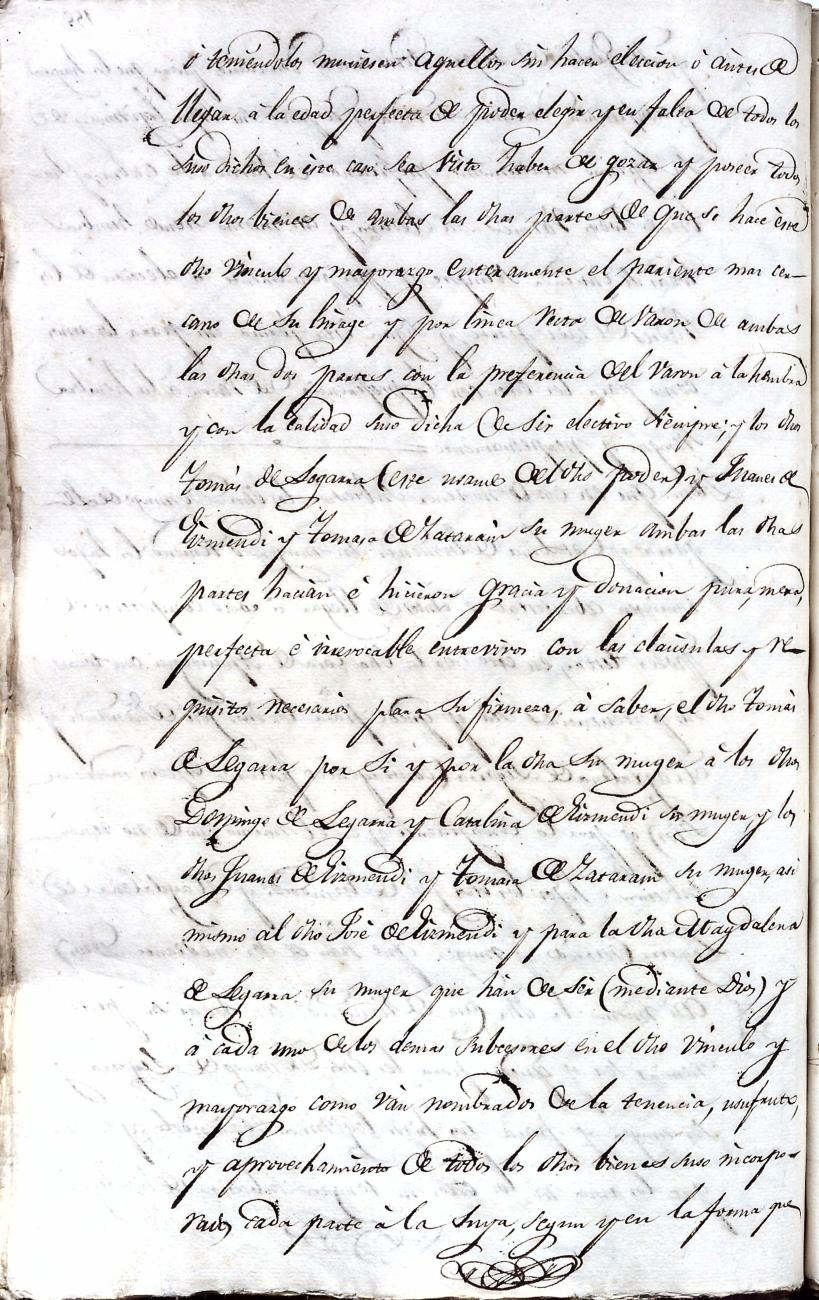 ó teniéndolos muriesen aquellos sin hacer eleccion ó àntes de
llegar à la edad perfecta de poder elegir y en falta de todos los
suso dichos en este caso sea visto haber de gozar y poseer todos
los dhos bienes de ambas las dhas partes de que se hace éste
dho vinculo y mayorazgo enteramente el pariente mas cer-
cano de su linage y por linea recta de Varon de ambas
las dhas dos partes con la preferencia del Varon à la hembra
y con la calidad suso dicha de ser electivo siempre; y los dhos
Tomás de Legarra (este usame del dho poder) y Juanes de
Eizmendi y Tomasa de Zatarain su muger ambas las dhas
partes hacian é hicieron gracia y donacion pura, mera,
perfecta é irrevocable entrevivos con las clausulas y re-
quisitos necesarios para su firmeza, à saber, el dho Tomás
de Legarra por si y por la dha su muger à los dhos
Domingo de Legarra y Catalina de Eizmendi su muger, y los
dhos Juanes de Eizmendi y Tomasa de Zatarain su muger, asi
mismo al dho José de Eizmendi y para la dha Magdalena
de Legarra su muger que hán de sér (mediante Dios) y
à cada uno de los demas subcesores en el dho vinculo y
mayorazgo como ván nombrados de la tenencia, usufruto,
y aprovechamiento de todos los dhos bienes suso incorpo-
rados cada parte à la suya, segun y en la forma que